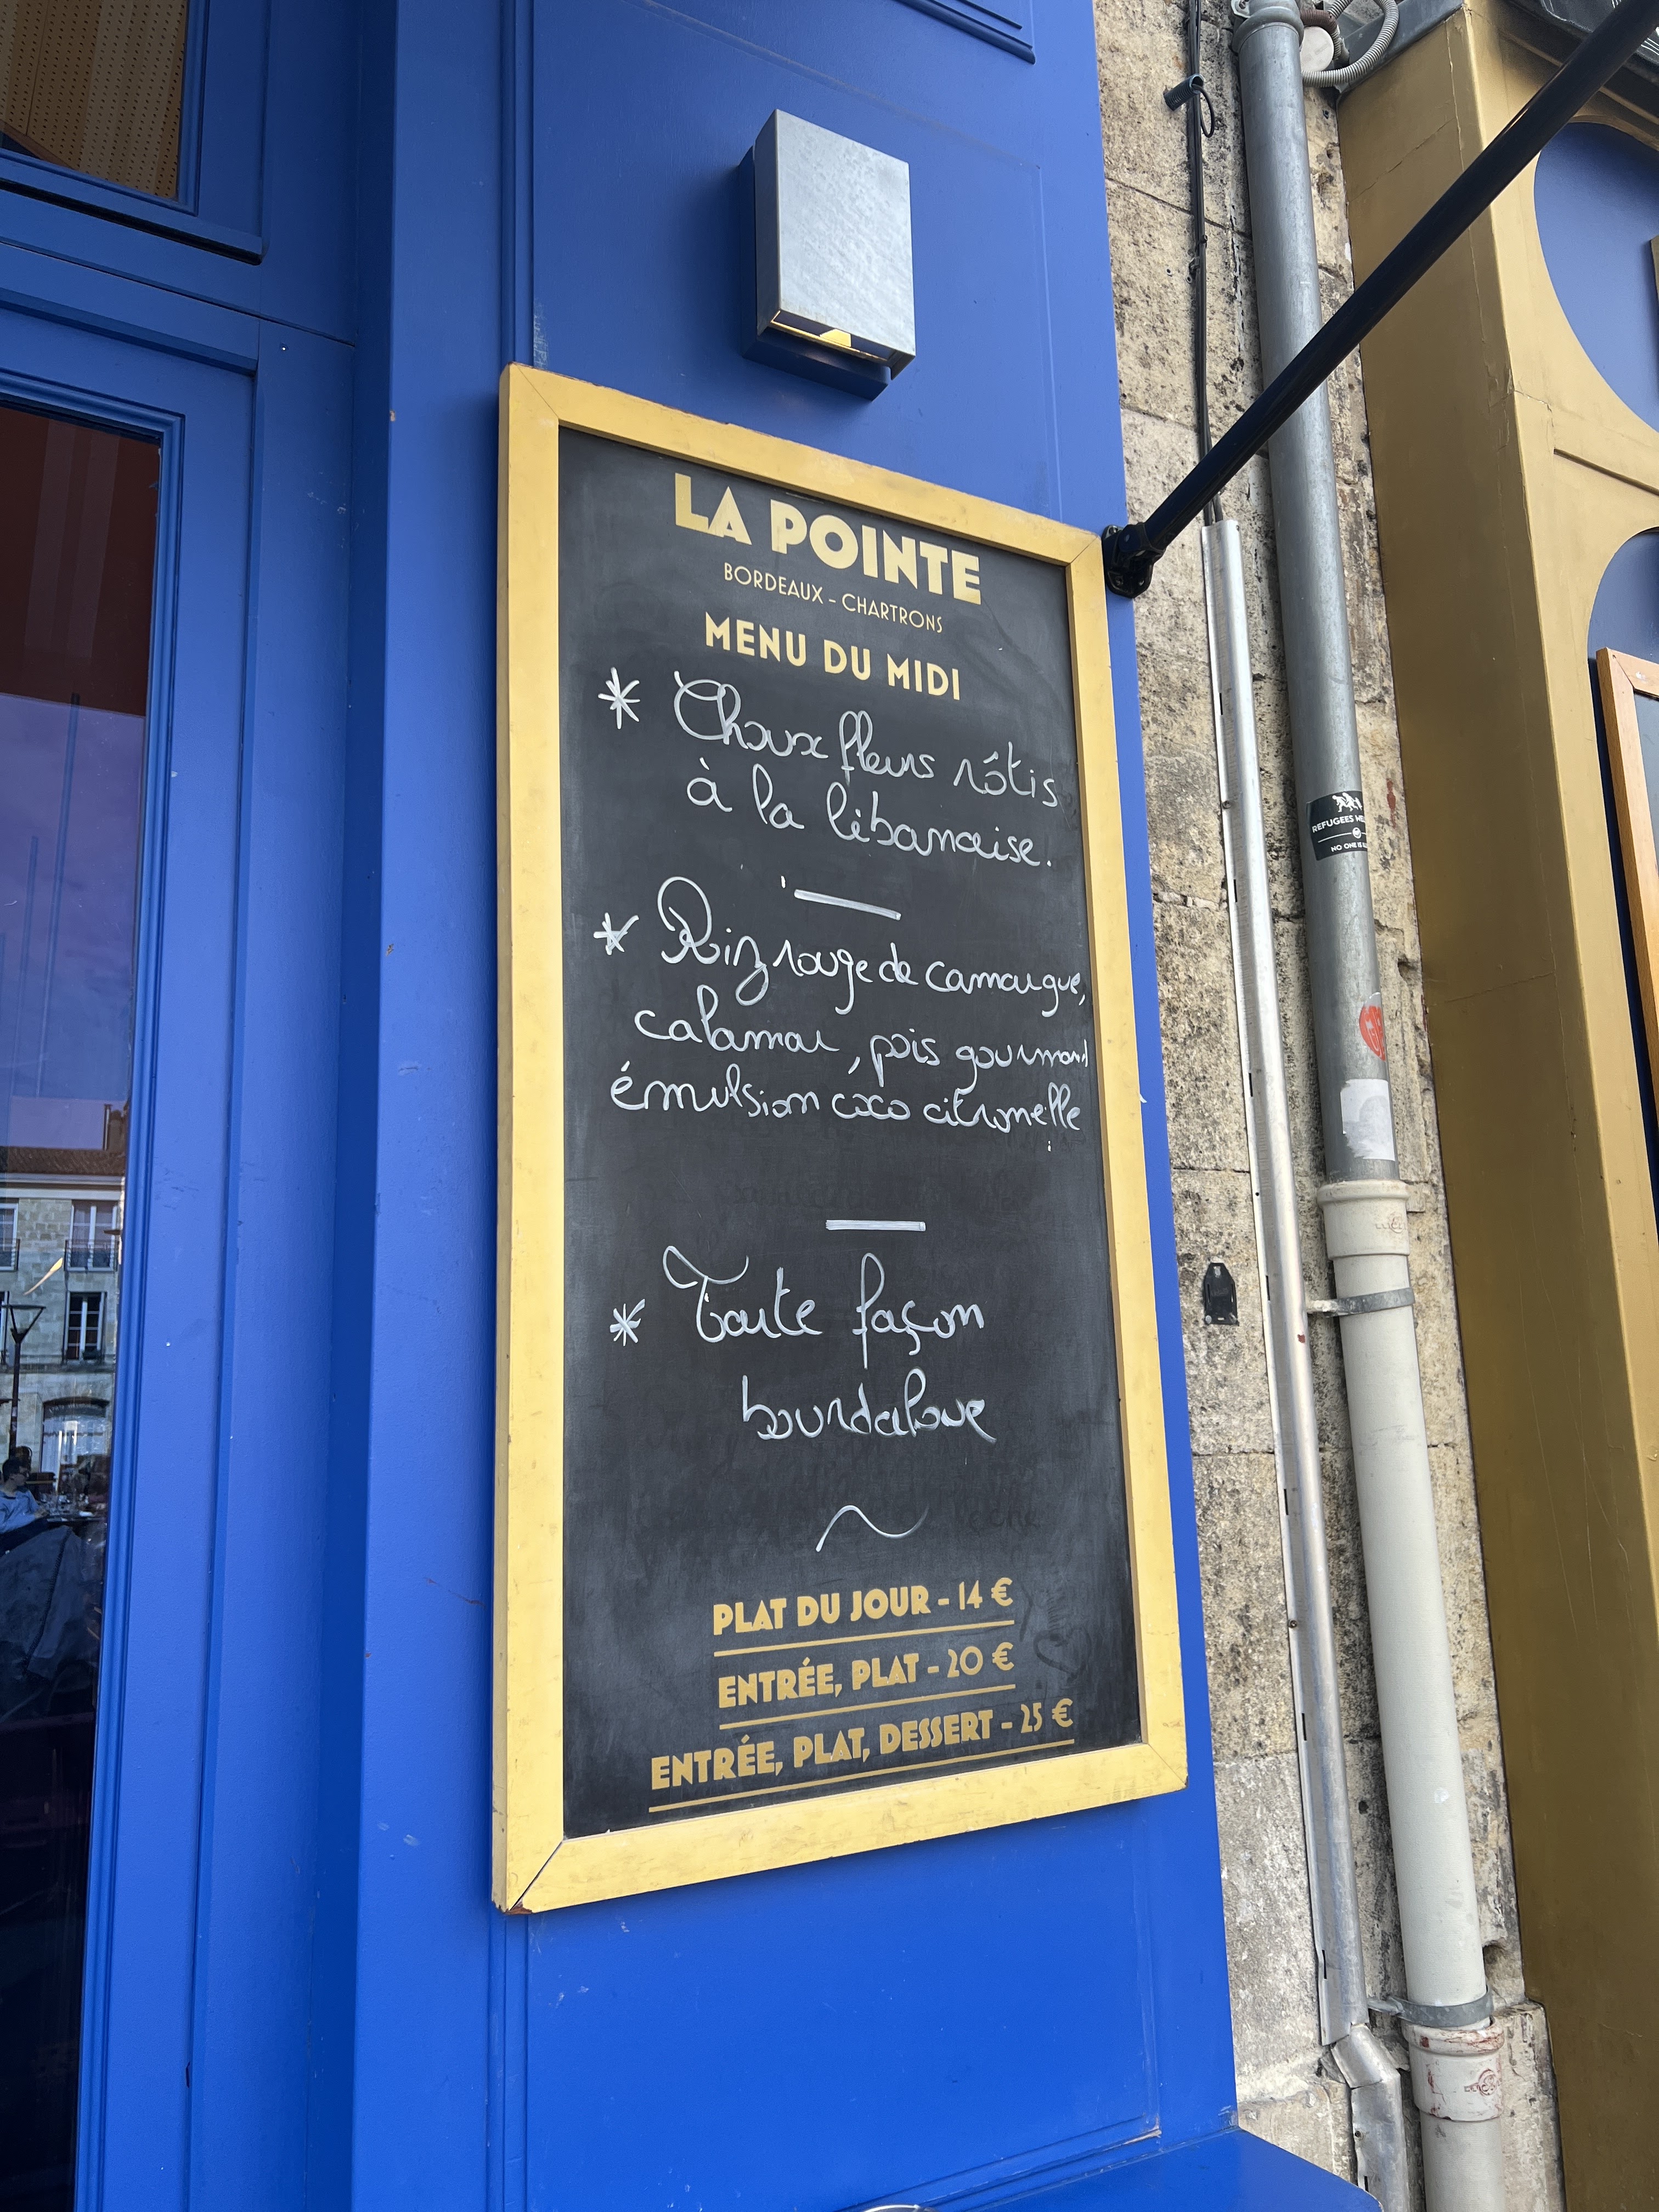 LA POINTE
BORDEAUX - CHARTRONS
MENU DU MIDI
* Choux fleurs rôtis
à la libanaise.
* Riz rouge de camargue,
calamar, pois gourmand
émulsion coco citronelle
* Tarte façon
bourdaloue
PLAT DU JOUR - 14 €
ENTRÉE, PLAT - 20 €
ENTRÉE, PLAT, DESSERT - 25 €
REFUGEES
NO ONE IS